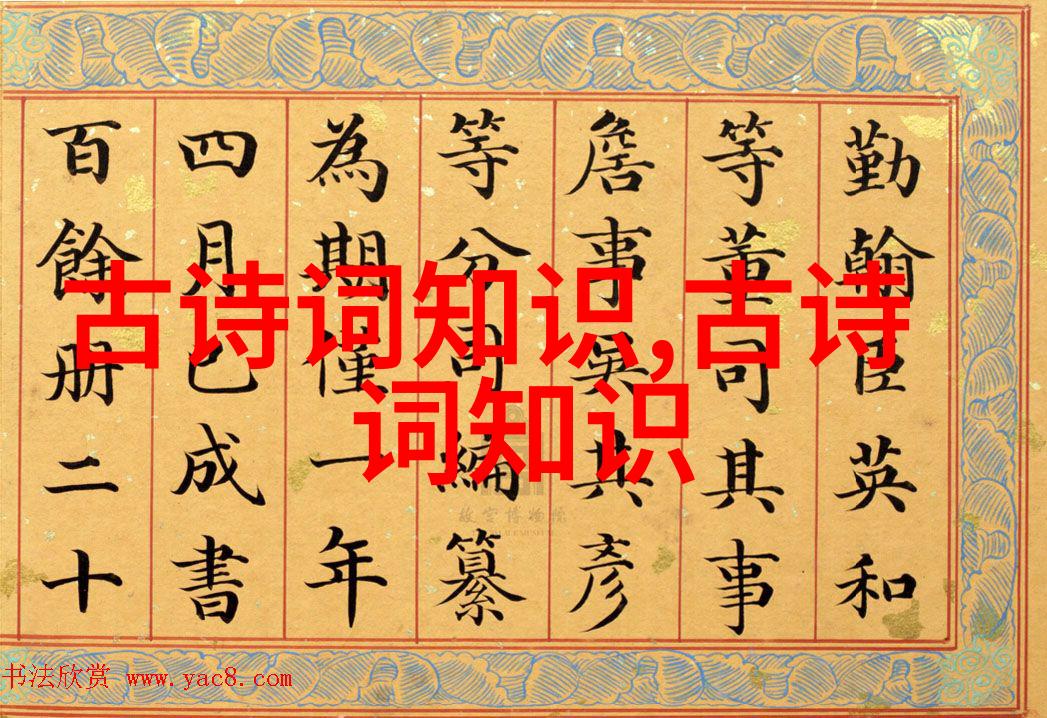 勤翰臣英和
等董司其事
詹事吳其彥
等分司編纂
為期僅一年
四月已成書
百餘册二十
古诗词知识,古诗
词知识
故宫博物院
书法欣赏 www.yac8.com